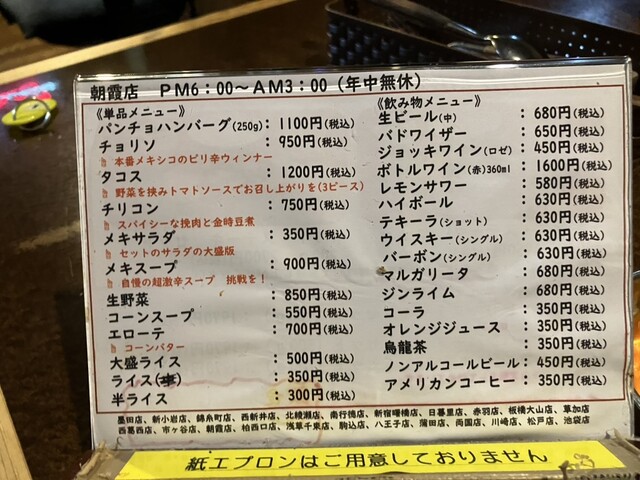 朝霞店 PM6:00〜AM3:00(年中無休)
《単品メニュー》
パンチョハンバーグ(250g): 1100円(税込)
チョリソ : 950円(税込)
本番メキシコのピリ辛ウィンナー
タコス : 1200円(税込)
野菜を挟みトマトソースでお召し上がりを(3ピース)
チリコン : 750円(税込)
スパイシーな挽肉と金時豆煮
メキサラダ : 350円(税込)
セットのサラダの大盛版
メキスープ : 900円(税込)
自慢の超激辛スープ 挑戦を!
生野菜 : 850円(税込)
コーンスープ : 550円(税込)
エローテ : 700円(税込)
コーンバター
大盛ライス : 500円(税込)
ライス( ) : 350円(税込)
半ライス : 300円(税込)
《飲み物メニュー》
生ビール(中) : 680円(税込)
バドワイザー : 650円(税込)
ジョッキワイン(ロゼ) : 450円(税込)
ボトルワイン(赤)360ml : 1600円(税込)
レモンサワー : 580円(税込)
ハイボール : 630円(税込)
テキーラ(ショット) : 630円(税込)
ウイスキー(シングル) : 630円(税込)
バーボン(シングル) : 630円(税込)
マルガリータ : 680円(税込)
ジンライム : 680円(税込)
コーラ : 350円(税込)
オレンジジュース : 350円(税込)
烏龍茶 : 350円(税込)
ノンアルコールビール: 450円(税込)
アメリカンコーヒー : 350円(税込)
墨田店、新小岩店、錦糸町店、西新井店、北綾瀬店、南行徳店、新宿曙橋店、日暮里店、赤羽店、板橋大山店、草加店
西葛西店、市ヶ谷店、朝霞店、柏西口店、浅草千束店、駒込店、八王子店、蒲田店、両国店、川崎店、松戸店、池袋店
紙エプロンはご用意しておりません